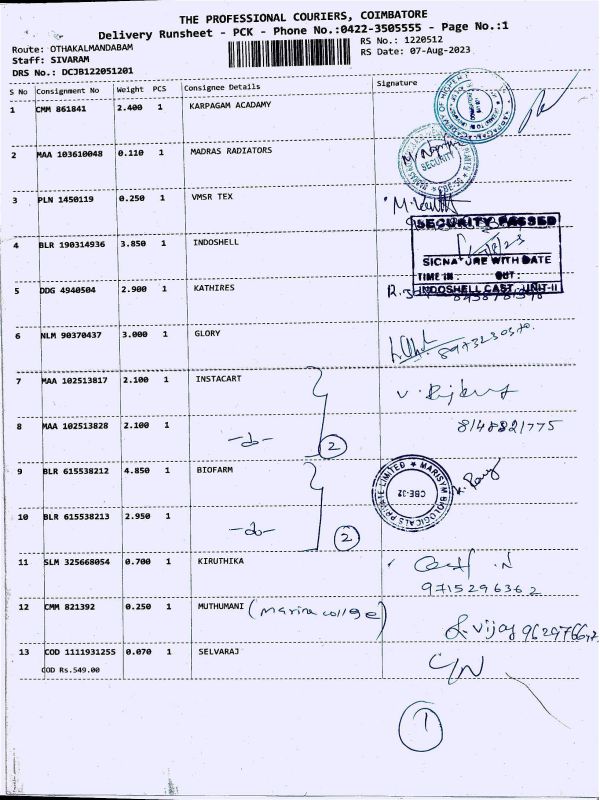 THE PROFESSIONAL COURIERS, COIMBATORE
Delivery Runsheet - PCK - Phone No.:0422-3505555 - Page No.:1
Route: OTHAKALMANDABAM
RS No.: 1220512
Staff: SIVARAM
RS Date: 07-Aug-2023
DRS No.: DCJB122051201
S No Consignment No Weight PCS Consignee Details Signature
1 CMM 861841 2.400 1 KARPAGAM ACADAMY
2 MAA 103610048 0.110 1 MADRAS RADIATORS
SECURITY
CBE-50
3 PLN 1450119 0.250 1 VMSR TEX
SECURITY PASSED
4 BLR 190314936 3.850 1 INDOSHELL
SIGNATURE WITH DATE
TIME IN : OUT :
INDOSHELL CAST UNIT-II
5 DDG 4940504 2.900 1 KATHIRES
6 NLM 90370437 3.000 1 GLORY
7 MAA 102513817 2.100 1 INSTACART
8 MAA 102513828 2.100 1 -do- 2
8148821775
9 BLR 615538212 4.850 1 BIOFARM
MARISYM BIOLOGICALS PRIVATE LIMITED
CBE-32
10 BLR 615538213 2.950 1 -do- 2
11 SLM 325668054 0.700 1 KIRUTHIKA
9715296362
12 CMM 821392 0.250 1 MUTHUMANI (Marina college)
13 COD 1111931255 0.070 1 SELVARAJ
COD Rs.549.00
1